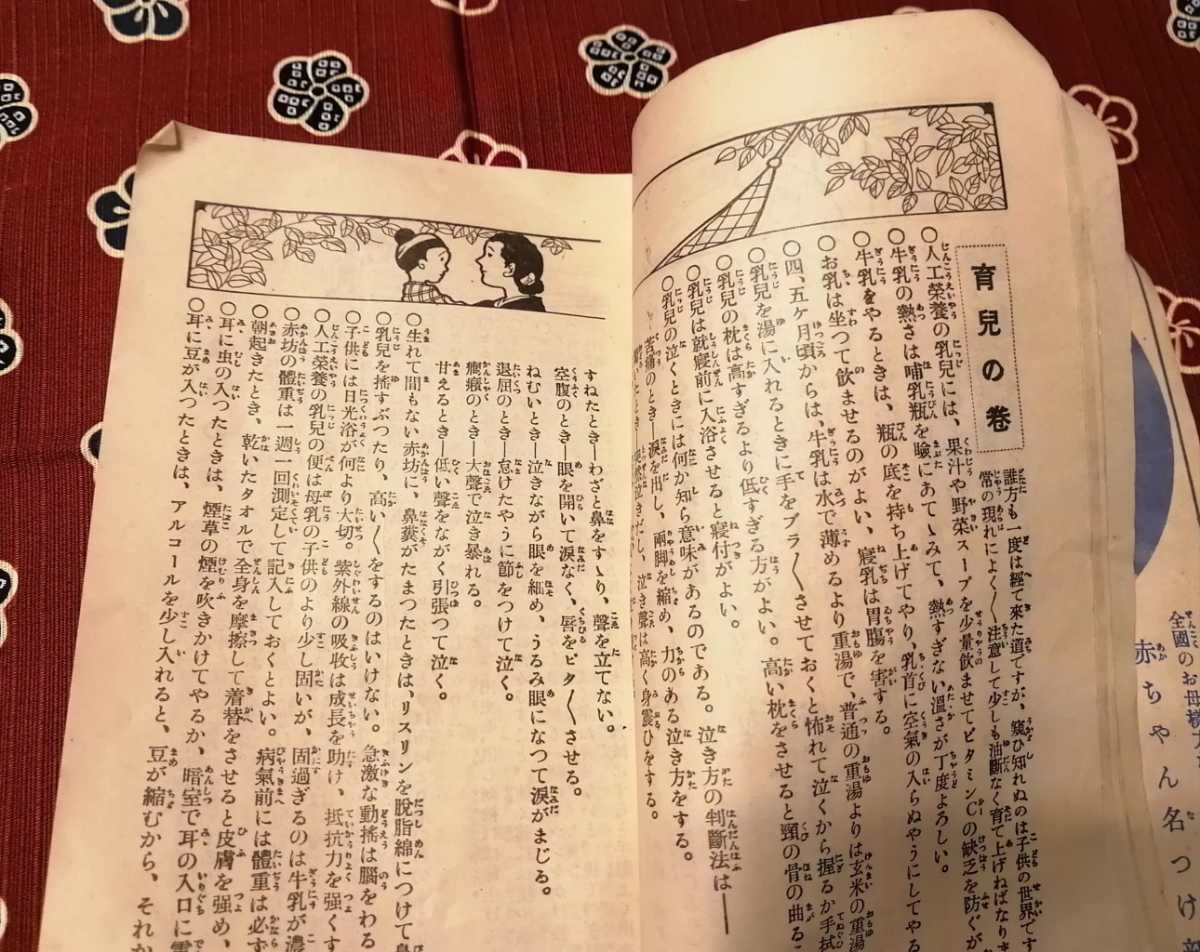 育兒の卷
誰方も一度は經て來た道ですが、窺ひ知れぬのは子供の世界です
常の現れによく〳〵注意して少しも油斷なく育て上げねばなりま
○人工榮養の乳兒には、果汁や野菜スープを少量飮ませてビタミンCの缺乏を防ぐが
○牛乳の熱さは哺乳瓶を瞼にあてゝみて、熱すぎない溫さが丁度よろしい。
○牛乳をやるときは、瓶の底を持ち上げてやり、乳首に空氣の入らぬやうにしてやる
○お乳は坐つて飮ませるのがよい、寢乳は胃腸を害する。
○四、五ケ月頃からは、牛乳は水で薄めるより重湯で、普通の重湯よりは玄米の重湯
○乳兒を湯に入れるときに手をブラ〳〵させておくと怖れて泣くから握るか手拭
○乳兒の枕は高すぎるより低すぎる方がよい。高い枕をさせると頸の骨の曲る
○乳兒は就寢前に入浴させると寢付がよい。
○乳兒の泣くときには何か知ら意味があるのである。泣き方の判斷法は――
苦痛のとき―淚を出し、兩脚を縮め、力のある泣き方をする。
泣きだし、泣き聲は高く身震ひをする。
すねたとき―わざと鼻をすゝり、聲を立てない。
空腹のとき―眼を開いて淚なく、唇をピタ〳〵させる。
ねむいとき―泣きながら眼を細め、うるみ眼になつて淚がまじる。
退屈のとき―怠けたやうに節をつけて泣く。
癇癪のとき―大聲で泣き暴れる。
甘えるとき―低い聲をながく引張つて泣く。
○生れて間もない赤坊に、鼻糞がたまつたときは、リスリンを脫脂綿につけて鼻
○乳兒を搖すぶつたり、高い〳〵をするのはいけない。急激な動搖は腦をわる
○子供には日光浴が何より大切。紫外線の吸收は成長を助け、抵抗力を强くす
○人工榮養の乳兒の便は母乳の子供のより少し固いが、固過ぎるのは牛乳が濃
○赤坊の體重は一週一回測定して記入しておくとよい。病氣前には體重は必ず
○朝起きたとき、乾いたタオルで全身を摩擦して着替をさせると皮膚を强め、
○耳に虫の入つたときは、煙草の煙を吹きかけてやるか、暗室で耳の入口に電
○耳に豆が入つたときは、アルコールを少し入れると、豆が縮むから、それか
全國のお母樣方
赤ちやん名つけ